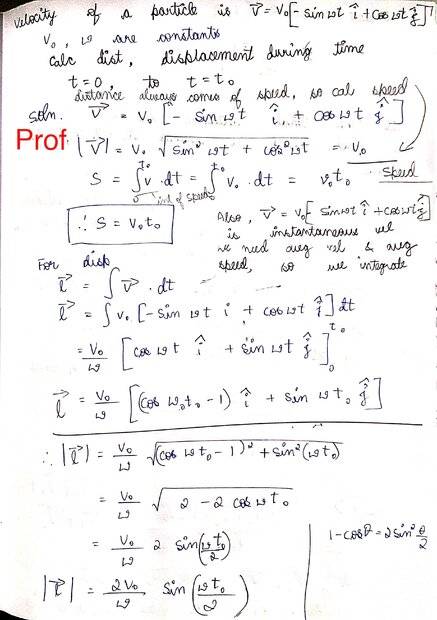 velocity of a particle is v⃗ = v₀[sin ωt î + cos ωt ĵ]
v₀, ω are constants
calc dist, displacement during time
t = 0 to t = t₀
distance always comes of speed, so cal speed
Soln. v⃗ = v₀ [- sin ωt î + cos ωt ĵ]
Prof |v⃗| = v₀ √(sin² ωt + cos² ωt) = v₀
S = ∫₀^t₀ v · dt = ∫₀^t₀ v₀ · dt = v₀t₀ speed
int of speed
∴ S = v₀t₀
Also, v⃗ = v₀[sin ωt î + cos ωt ĵ]
is instantaneous vel
we need avg vel & avg
speed, so we integrate
For disp
l⃗ = ∫ v⃗ · dt
l⃗ = ∫ v₀ [- sin ωt i + cos ωt ĵ] dt
= v₀/ω [cos ωt î + sin ωt ĵ]₀^t₀
l⃗ = v₀/ω [(cos ω₀t₀ - 1) î + sin ωt₀ ĵ]
∴ |l⃗| = v₀/ω √((cos ωt₀ - 1)² + sin²(ωt₀))
= v₀/ω √(2 - 2 cos ωt₀)
= v₀/ω 2 sin(ωt₀/2)
1 - cosθ = 2 sin² θ/2
|l⃗| = 2v₀/ω sin(ωt₀/2)